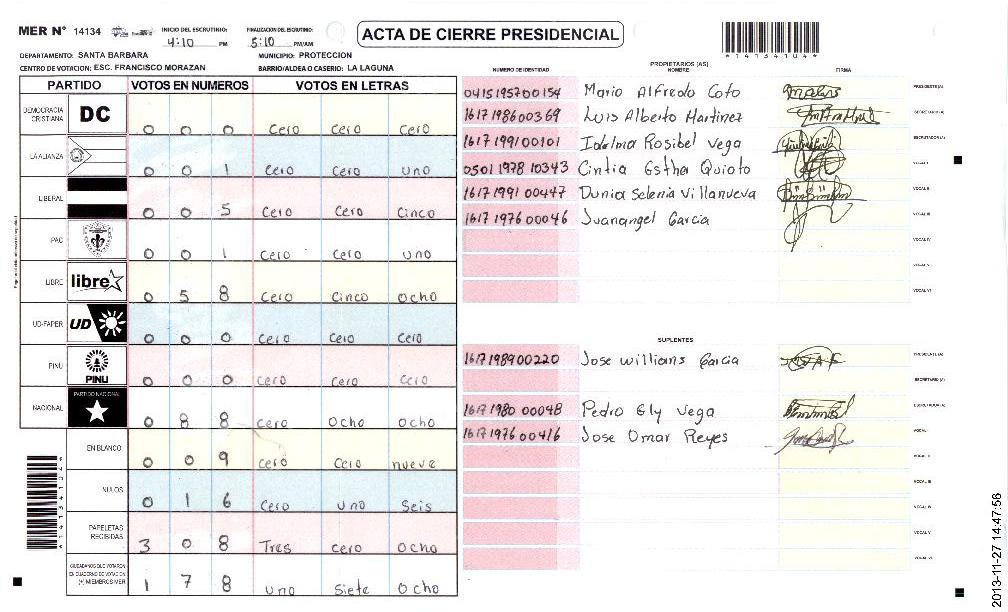 MER N° 14134 INICIO DEL ESCRUTINIO: 4:10 PM FINALIZACION DEL ESCRUTINIO: 5:10 PM/AM
ACTA DE CIERRE PRESIDENCIAL
*14134104*
DEPARTAMENTO: SANTA BARBARA MUNICIPIO: PROTECCION
CENTRO DE VOTACION: ESC. FRANCISCO MORAZAN BARRIO/ALDEA O CASERIO: LA LAGUNA
PARTIDO VOTOS EN NUMEROS VOTOS EN LETRAS
DEMOCRACIA CRISTIANA DC 0 0 0 Cero Cero Cero
LA ALIANZA 0 0 1 Cero Cero uno
LIBERAL 0 0 5 Cero Cero Cinco
PAC 0 0 1 Cero Cero uno
LIBRE libre 0 5 8 Cero Cinco ocho
UD-FAPER UD 0 0 0 Cero Cero Cero
PINU PINU 0 0 0 Cero Cero Cero
NACIONAL PARTIDO NACIONAL 0 8 8 Cero Ocho Ocho
EN BLANCO 0 0 9 Cero Cero nueve
NULOS 0 1 6 Cero uno Seis
PAPELETAS RECIBIDAS 3 0 8 Tres cero Ocho
CIUDADANOS QUE VOTARON EN CUADERNO DE VOTACION (+) MIEMBROS MER 1 7 8 uno Siete Ocho
PROPIETARIOS (AS)
NUMERO DE IDENTIDAD NOMBRE FIRMA
0415195700154 Mario Alfredo Coto PRESIDENTE (A)
1617198600369 Luis Alberto Martinez SECRETARIO (A)
1617199100101 Idalma Rosibel Vega ESCRUTADOR (A)
0501197810343 Cintia Esther Quioto VOCAL I
1617199100447 Dunia Selenia Villanueva VOCAL II
1617197600046 Juanangel Garcia VOCAL III
VOCAL IV
VOCAL V
VOCAL VI
SUPLENTES
1617198900220 Jose williams Garcia PRESIDENTE (A)
SECRETARIO (A)
1617198000048 Pedro Ely Vega ESCRUTADOR (A)
1617197600416 Jose Omar Reyes VOCAL I
VOCAL II
VOCAL III
VOCAL IV
VOCAL V
VOCAL VI
2013-11-27 14:47:58